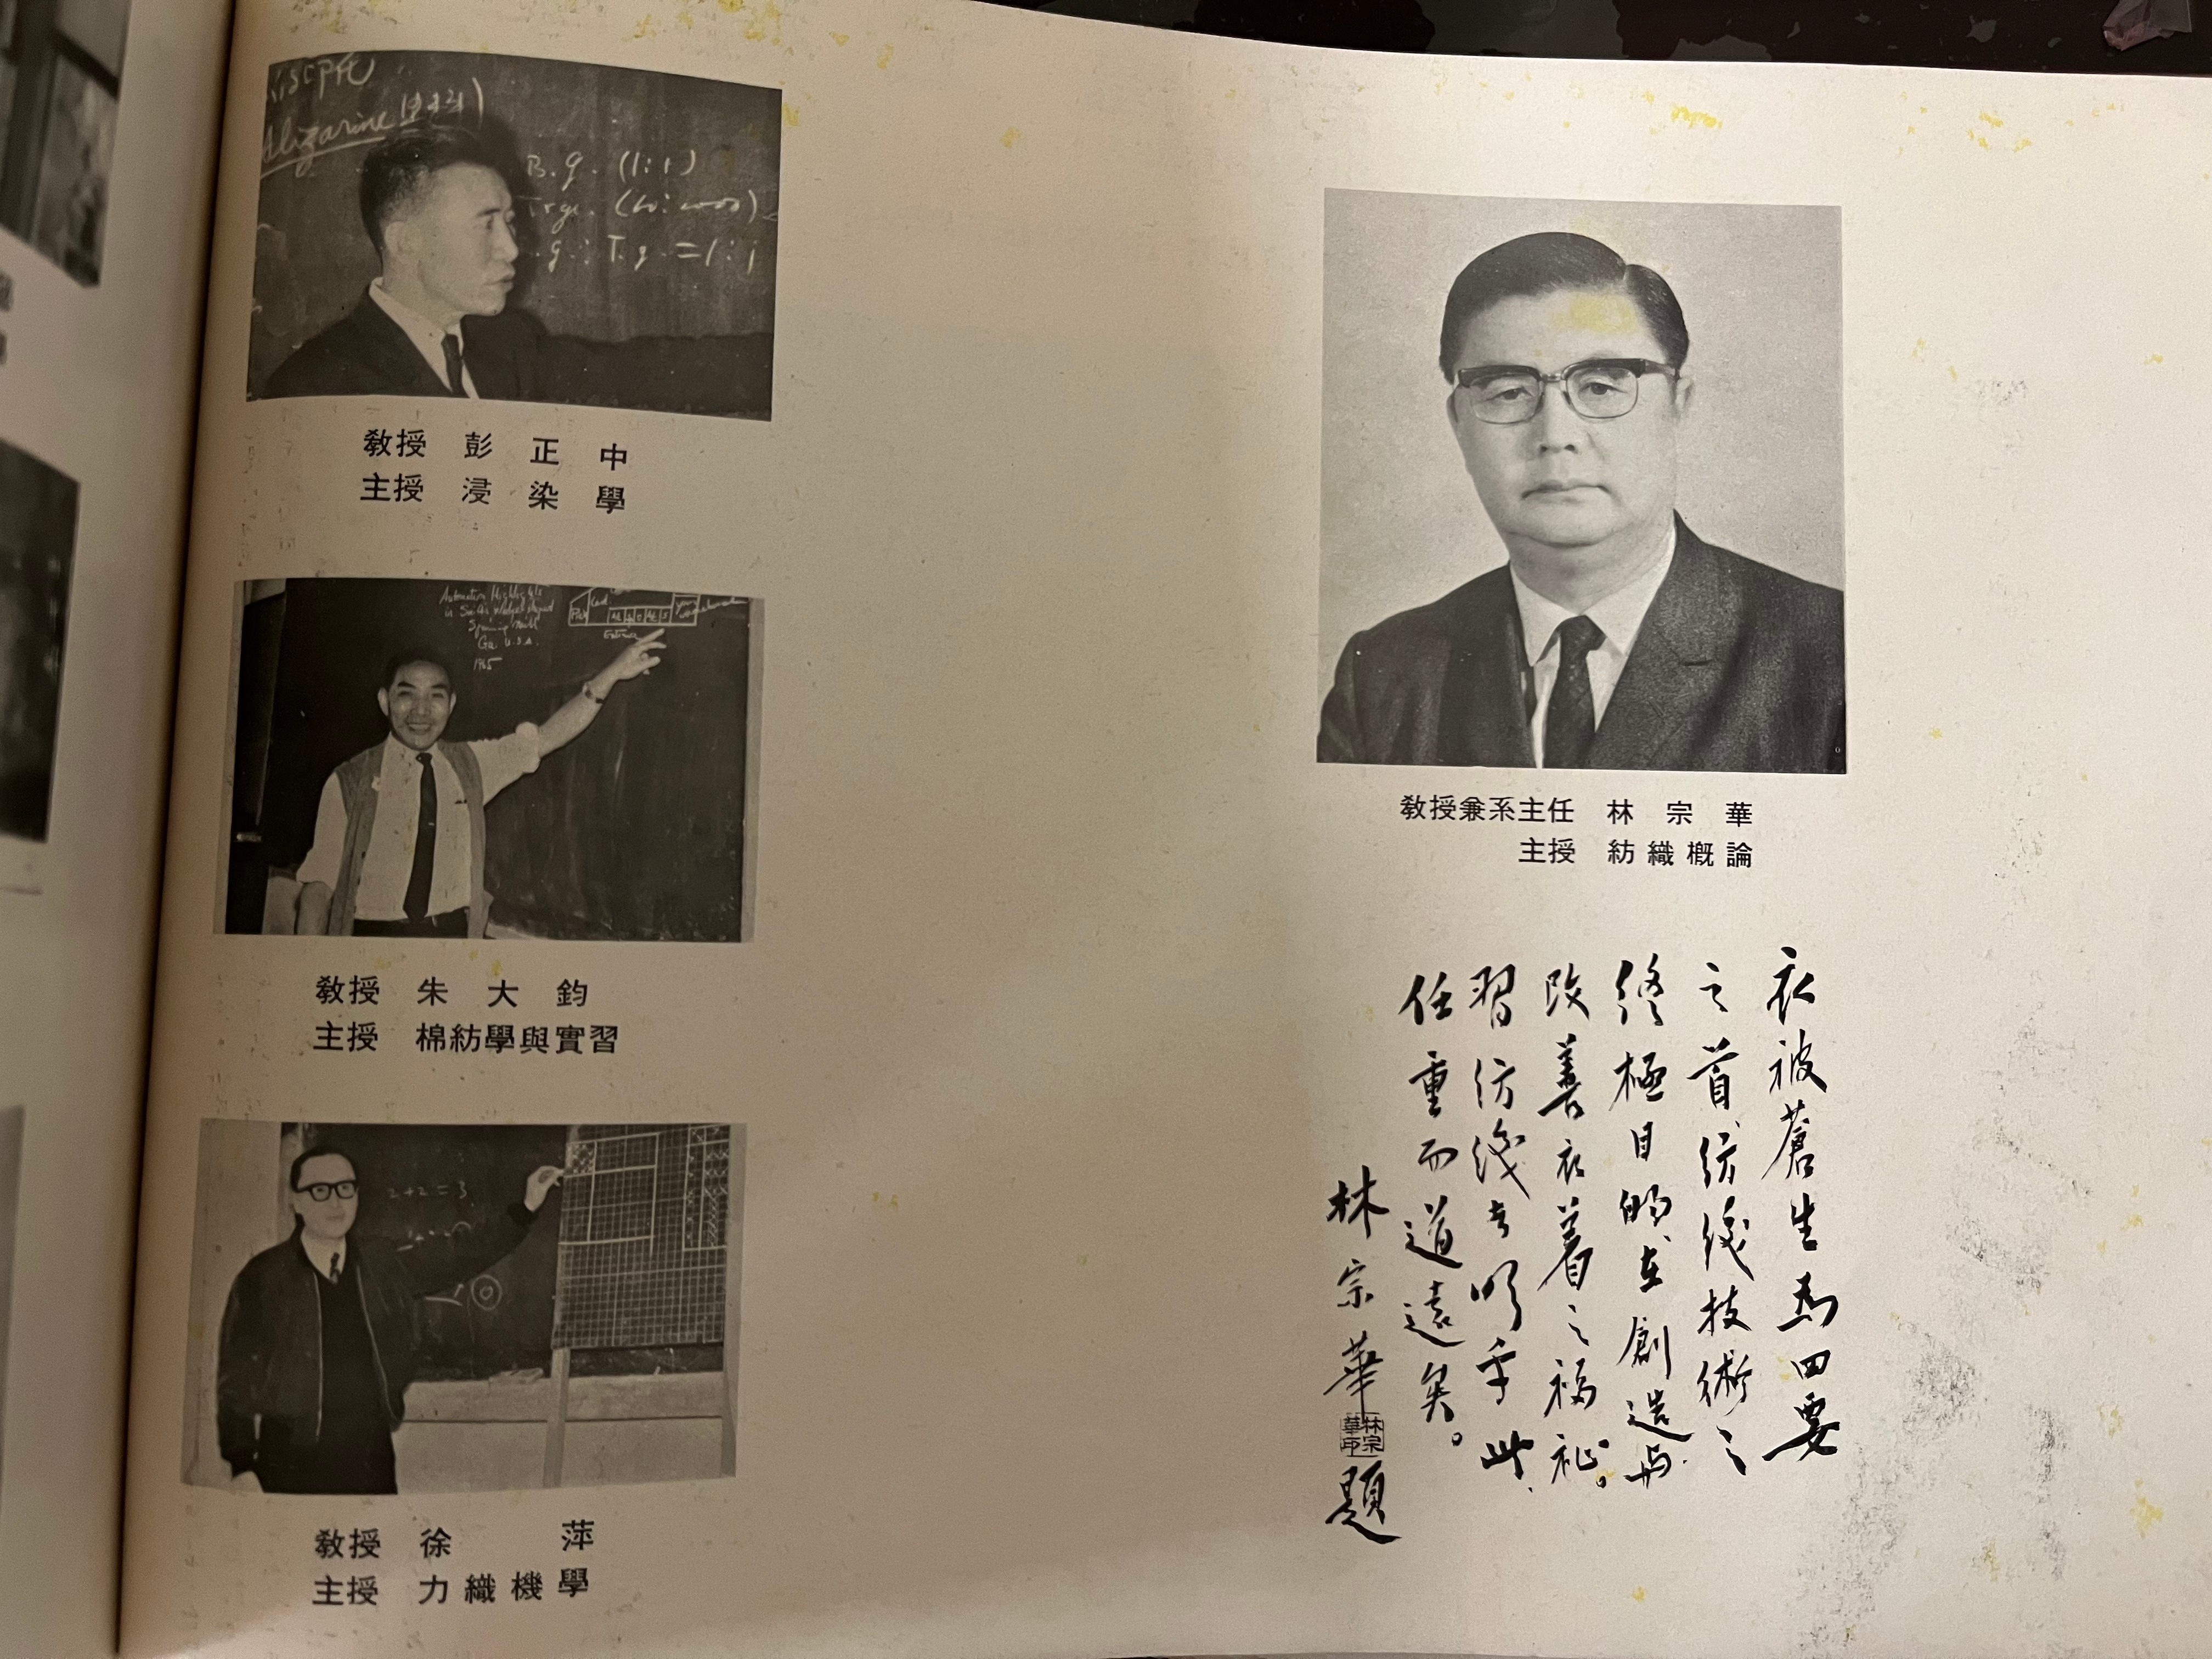 Alizarine
B.g. (1:1)
g.: T.g. = 1:1
教授 彭正中
主授 浸染學
Automation Highlights
Spinning Mill
Ga. U.S.A.
1965
Card
Entrance
教授 朱大鈞
主授 棉紡學與實習
2+2=3
教授 徐萍
主授 力織機學
教授兼系主任 林宗華
主授 紡織概論
衣被蒼生為四要
之首紡織技術之
終極目的在創造与
改善衣着之福祉。
習紡織者明乎此
任重而道遠矣。
林宗華題
林宗華印